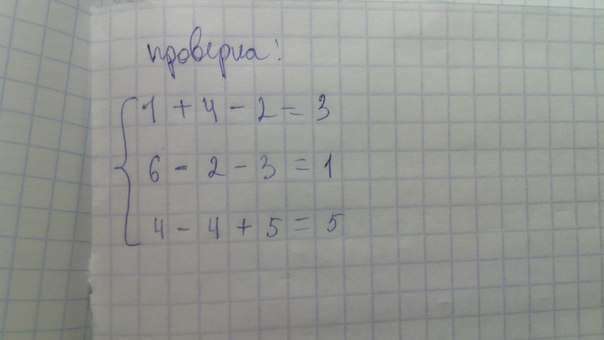 проверка:
1 + 4 - 2 = 3
6 - 2 - 3 = 1
4 - 4 + 5 = 5